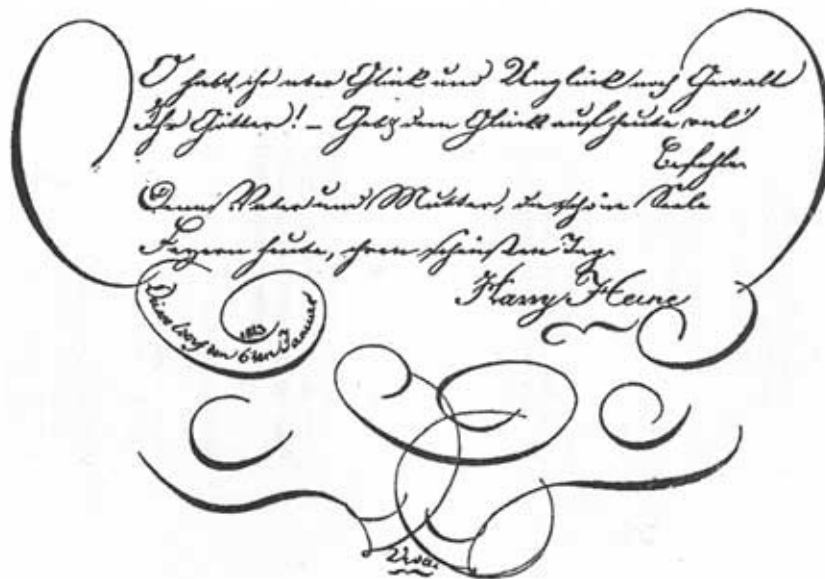 O habt ihr uber Glück und Unglück noch Gewalt
Ihr Götter! – Gebt dem Glück auf heute viel'
Befehle
Denn Vater und Mutter, die schöne Seele
Feyern heute, ihren schönsten Tag.
Harry Heine
Düsseldorf den 6ten Januar
1813